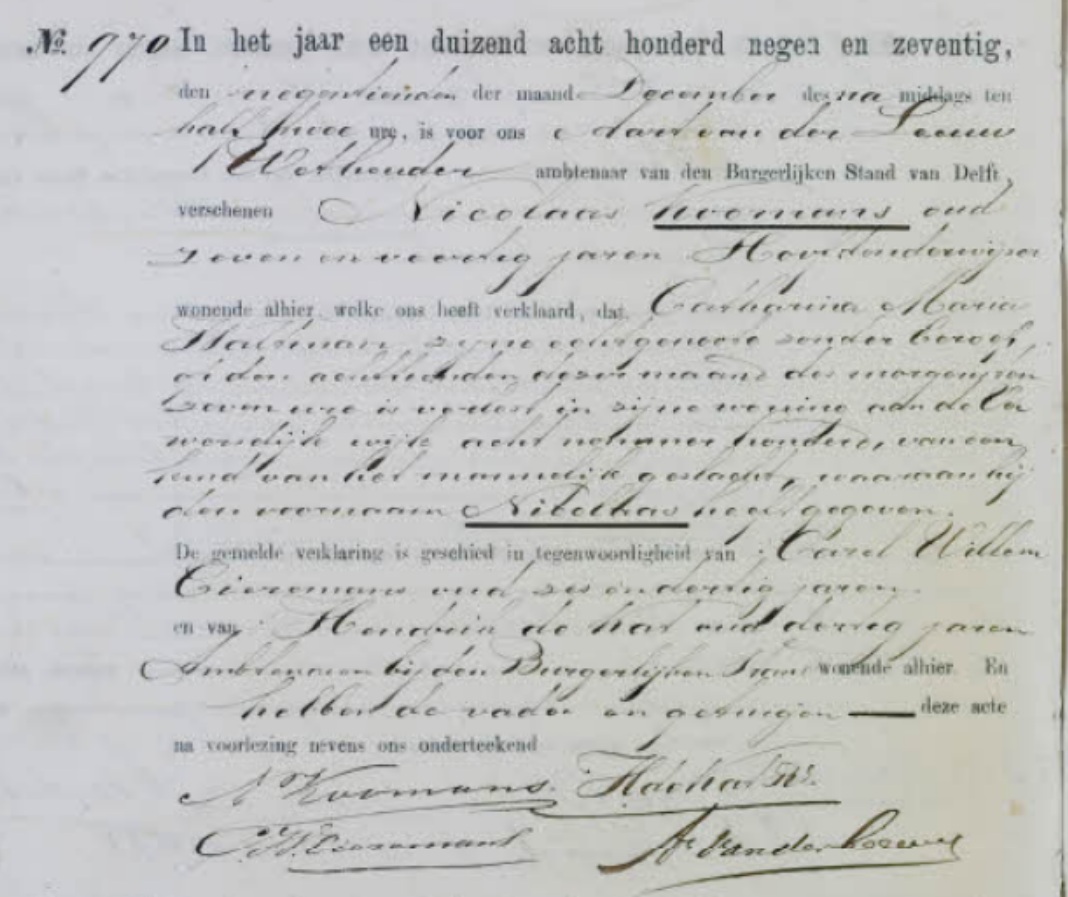 No. 970 In het jaar een duizend acht honderd negen en zeventig,
den negentienden der maand December des na middags ten
half twee ure, is voor ons van der Leeuw
Wethouder ambtenaar van den Burgerlijken Stand van Delft,
verschenen Nicolaas Koomans oud
zeven en veertig jaren Hoofdonderwijzer
wonende alhier, welke ons heeft verklaard, dat Catharina Maria
zijne echtgenoote zonder beroep,
op den achttienden dezer maand des morgens ten
zeven ure is verlost, in zijne woning aan de
wijk acht nommer honderd, van een
kind van het mannelijk geslacht, waaraan hij
den voornaam heeft gegeven.
De gemelde verklaring is geschied in tegenwoordigheid van Carel Willem
oud zes en dertig jaren
en van Hendrik de Kat oud dertig jaren
Ambtenaren bij den Burgerlijken Stand wonende alhier. En
hebben de vader en getuigen deze acte
na voorlezing nevens ons onderteekend
N Koomans.
van der Leeuw